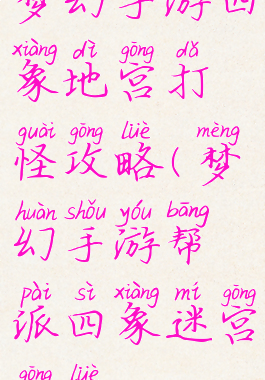 梦幻手游四
xiàng dì gōng dǎ
象地宫打
guài gōng lüè mèng
怪攻略(梦
huàn shǒu yóu bāng
幻手游帮
pài sì xiàng mí gōng
派四象迷宫
gōng lüè